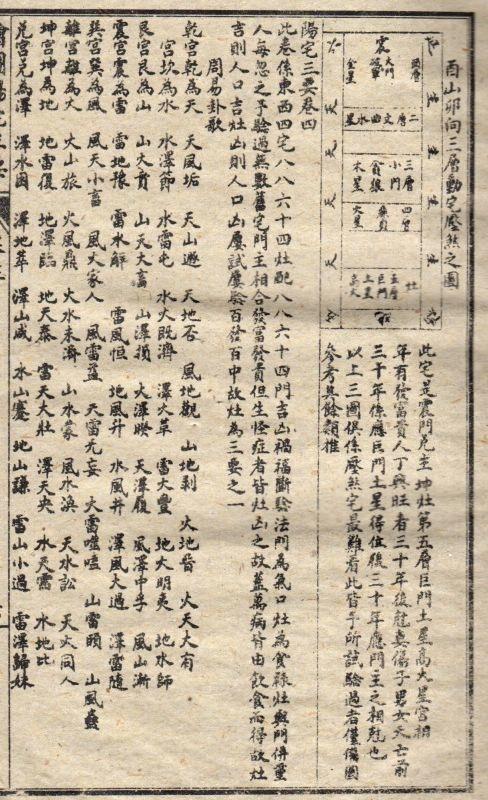 酉山卯向三層動宅壓煞之圖
頭層
大門
震
金星
二層文曲水星
三層
小門
貪狼
木星
四層
火星
灶
五層
巨門
土星
高大
此宅是震門兌主坤灶第五層巨門土星高大星宮相
年有發富貴人丁興旺者三十年後尅妻傷子男女夭亡前
三十年係應巨門土星得位後三十年應門主之相尅也
以上三圖俱係壓煞宅最難看此皆予所試驗過者僅備圖
參考其餘類推
陽宅三要卷四
此卷係東西四宅八八六十四灶配八八六十四門吉凶禍福斷驗法門為氣口灶為食祿灶與門併重
人每忽之予驗過無數舊宅門主相合發富發貴但生怪症者皆灶凶之故蓋萬病皆由飲食而得故灶
吉則人口吉灶凶則人口凶屢試屢驗百發百中故灶為三要之一
周易卦歌
乾宮乾為天 天風垢 天山遯 天地否 風地觀 山地剥 火地晉 火天大有
宮坎為水 水澤節 水雷屯 水火既濟 澤火革 雷火豐 地火明夷 地水師
艮宮艮為山 山火賁 山天大畜 山澤損 火澤睽 天澤履 風澤中孚 風山漸
震宮震為雷 雷地豫 雷水解 雷風恒 地風升 水風井 澤風大過 澤雷隨
巽宮巽為風 風天小畜 風火家人 風雷益 天雷无妄 火雷噬嗑 山雷頤 山風蠱
離宮離為火 火山旅 火風鼎 火水未濟 山水蒙 風水渙 天水訟 天火同人
坤宮坤為地 地雷復 地澤臨 地天泰 雷天大壯 澤天夬 水天需 水地比
兌宮兌為澤 澤水困 澤地萃 澤山咸 水山蹇 地山謙 雷山小過 雷澤歸妹